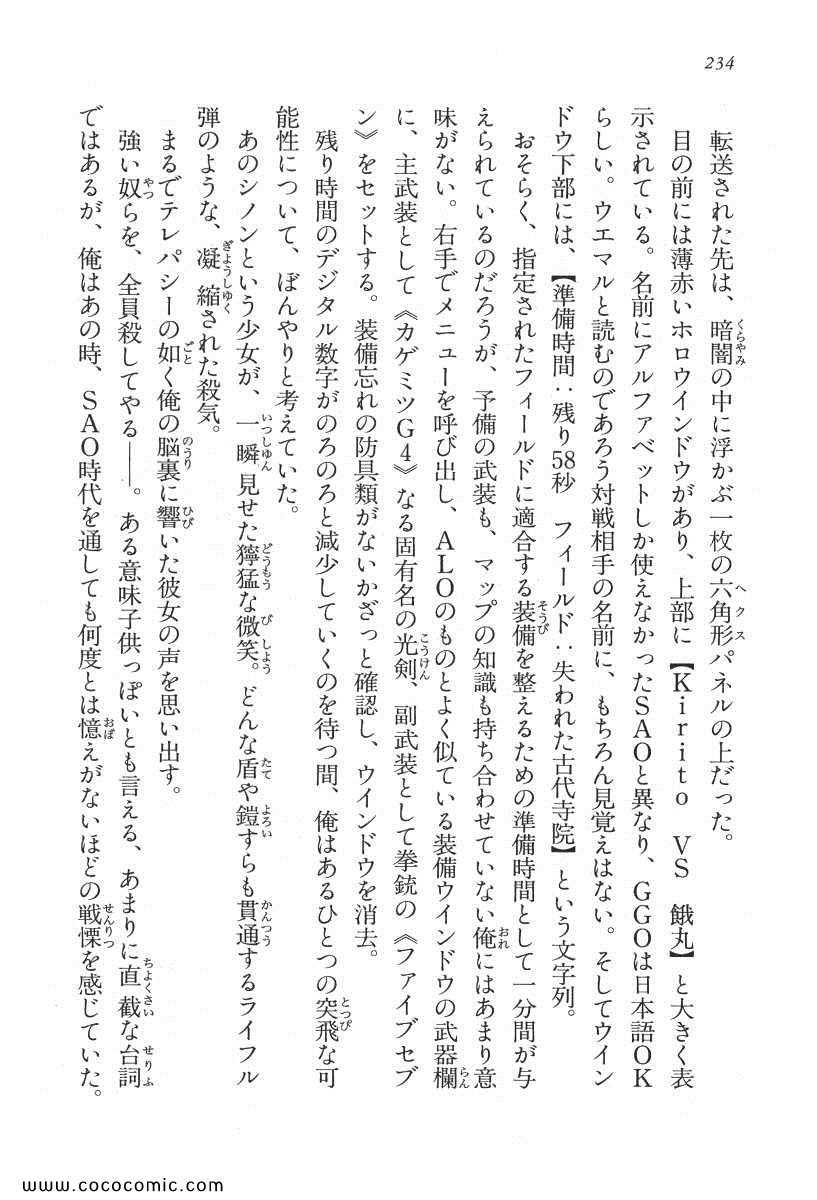 234
転送された先は、暗闇の中に浮かぶ一枚の六角形パネルの上だった。
目の前には薄赤いホロウインドウがあり、上部に【Kirito VS 餓丸】と大きく表
示されている。名前にアルファベットしか使えなかったSAOと異なり、GGOは日本語OK
らしい。ウエマルと読むのであろう対戦相手の名前に、もちろん見覚えはない。そしてウイン
ドウ下部には、【準備時間：残り58秒 フィールド：失われた古代寺院】という文字列。
おそらく、指定されたフィールドに適合する装備を整えるための準備時間として一分間が与
えられているのだろうが、予備の武装も、マップの知識も持ち合わせていない俺にはあまり意
味がない。右手でメニューを呼び出し、ALOのものとよく似ている装備ウインドウの武器欄
に、主武装として《カゲミツG4》なる固有名の光剣、副武装として拳銃の《ファイブセブ
ン》をセットする。装備忘れの防具類がないかざっと確認し、ウインドウを消去。
残り時間のデジタル数字がのろのろと減少していくのを待つ間、俺はあるひとつの突飛な可
能性について、ぼんやりと考えていた。
あのシノンという少女が、一瞬見せた獰猛な微笑。どんな盾や鎧すらも貫通するライフル
弾のような、凝縮された殺気。
まるでテレパシーの如く俺の脳裏に響いた彼女の声を思い出す。
強い奴らを、全員殺してやる――。ある意味子供っぽいとも言える、あまりに直截な台詞
ではあるが、俺はあの時、SAO時代を通しても何度とは憶えがないほどの戦慄を感じていた。
www.cococomic.com